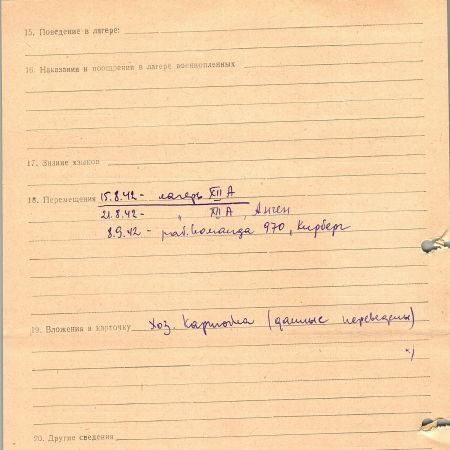 15. Поведение в лагере:
16. Наказания и поощрения в лагере военнопленных
17. Знание языков
18. Перемещения 15.8.42 - лагерь XII А
21.8.42 - " XII А,
8.9.42 - раб. команда 970, Кирберг
19. Вложения в карточку Хоз. карточка (данные переведены)
20. Другие сведения